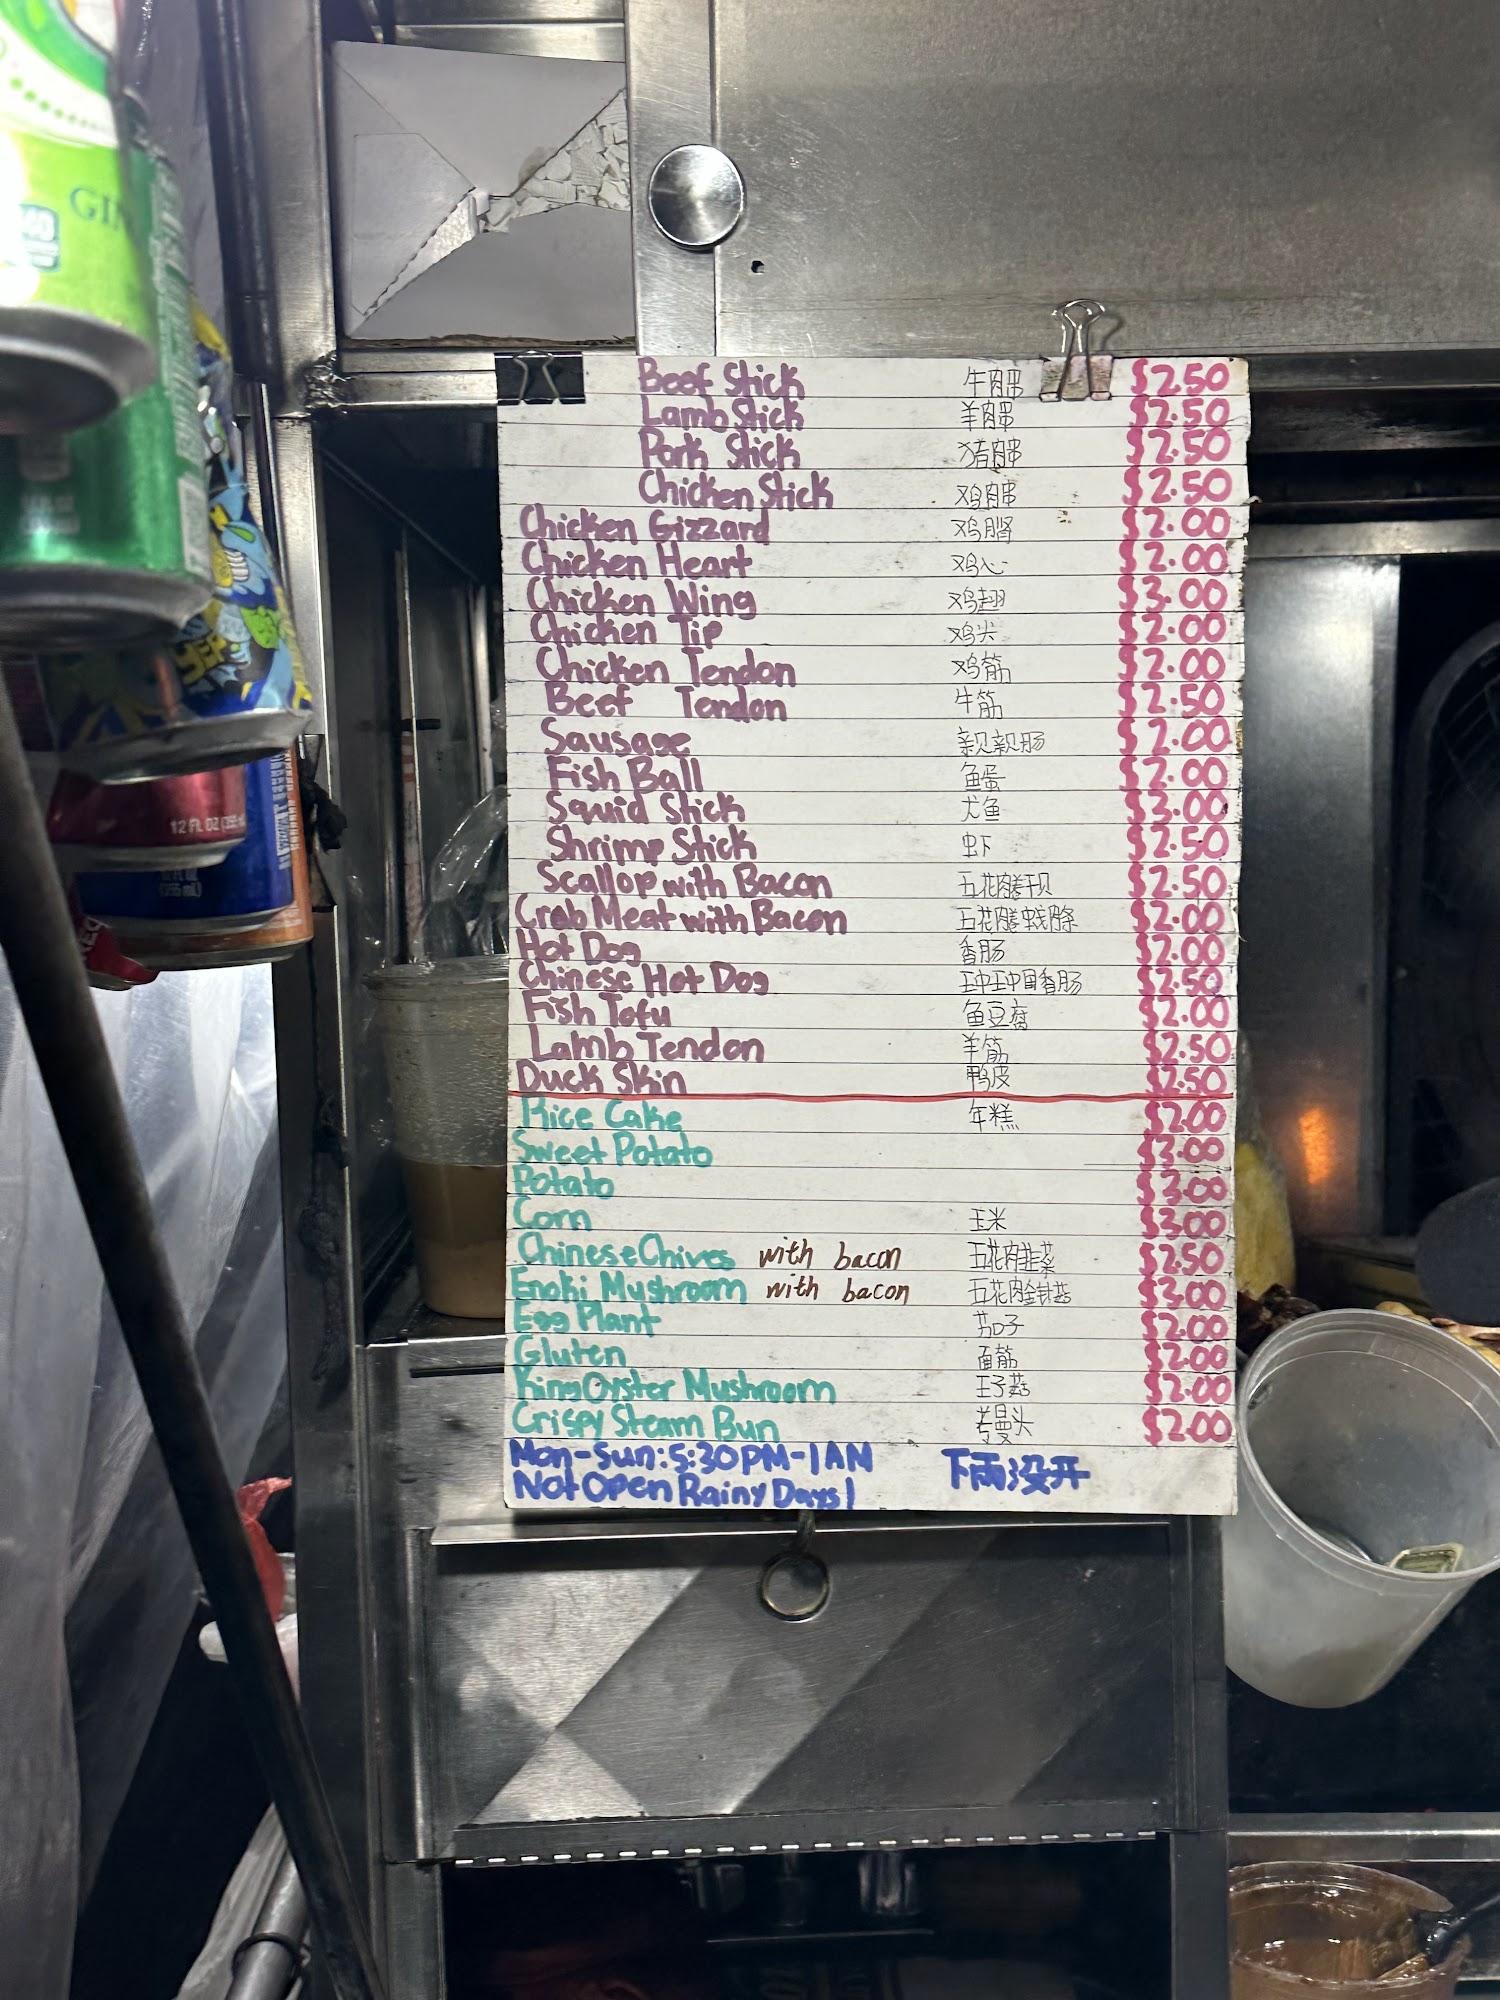 GIN
12 FL OZ (355 mL)
(355 mL)
Beef Stick 牛肉串 $2.50
Lamb Stick 羊肉串 $2.50
Pork Stick 猪肉串 $2.50
Chicken Stick 鸡肉串 $2.50
Chicken Gizzard 鸡肾 $2.00
Chicken Heart 鸡心 $2.00
Chicken Wing 鸡翅 $3.00
Chicken Tip 鸡尖 $2.00
Chicken Tendon 鸡筋 $2.00
Beef Tendon 牛筋 $2.50
Sausage 亲亲肠 $2.00
Fish Ball 鱼蛋 $2.00
Squid Stick 尤鱼 $3.00
Shrimp Stick 虾 $2.50
Scallop with Bacon 五花肉卷干贝 $2.50
Crab Meat with Bacon 五花肉 $2.00
Hot Dog 香肠 $2.00
Chinese Hot Dog 香肠 $2.50
Fish Tofu 鱼豆腐 $2.00
Lamb Tendon 羊筋 $2.50
Duck Skin 鸭皮 $2.50
Rice Cake 年糕 $2.00
Sweet Potato $3.00
Potato $3.00
Corn 玉米 $3.00
Chinese Chives with bacon 五花肉韭菜 $2.50
Enoki Mushroom with bacon 五花肉金针菇 $3.00
Egg Plant 茄子 $2.00
Gluten 面筋 $2.00
King Oyster Mushroom 王子菇 $2.00
Crispy Steam Bun $2.00
Mon-Sun: 5:30PM-1AM 下雨没开
Not Open Rainy Days!